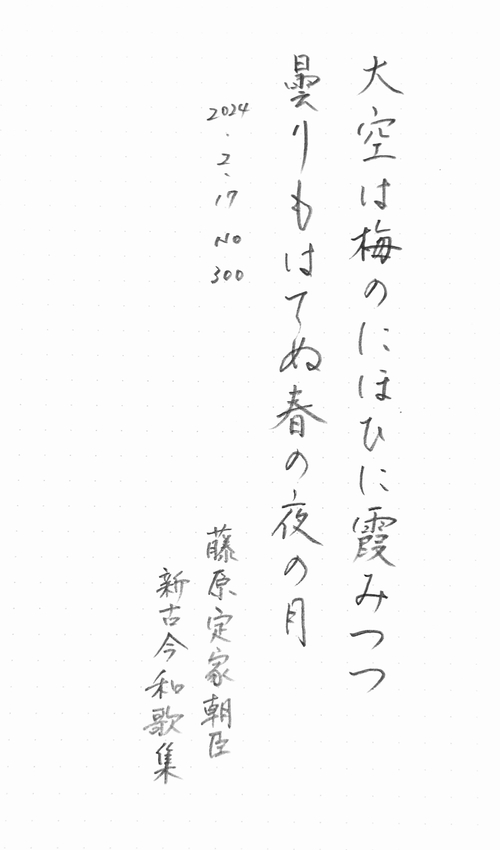 大空は梅のにほひに霞みつつ
曇りもはてぬ春の夜の月
2024.2.17 NO 300
藤原定家朝臣
新古今和歌集